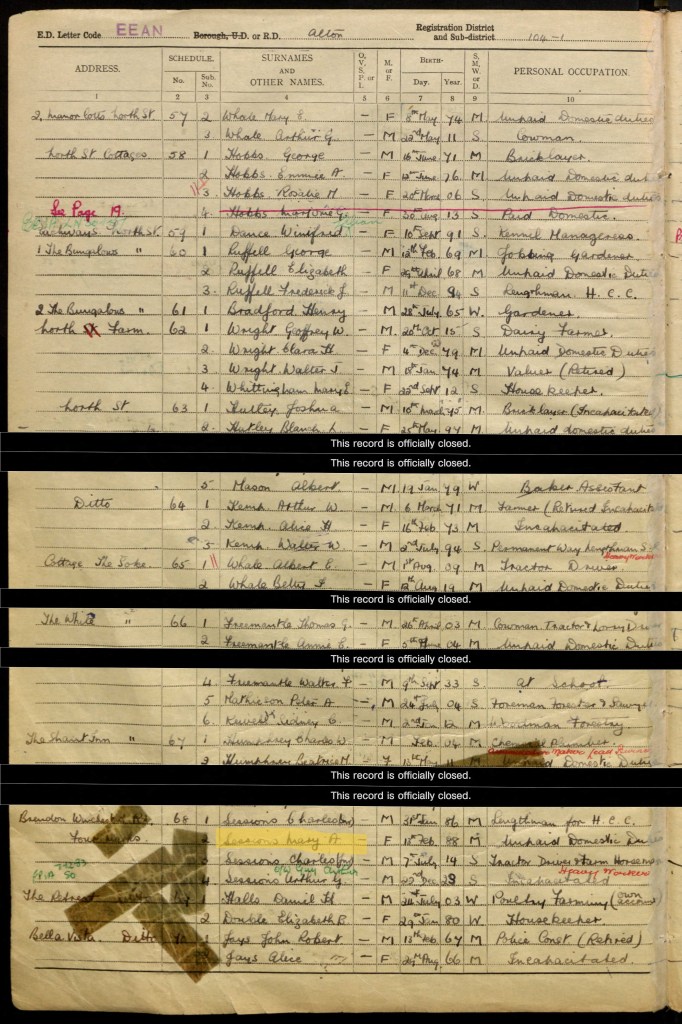 E.D. Letter Code EEAN Borough, U.D. or R.D. Alton Registration District and Sub-district 104-1
ADDRESS. SCHEDULE. SURNAMES AND OTHER NAMES. O. V. S. P. or I. M. or F. BIRTH— S. M. W. or D. PERSONAL OCCUPATION.
No. Sub. No. Day. Year.
1 2 3 4 5 6 7 8 9 10
2, Manor Cotts North St. 57 2 Whale Mary E. — F 8th May 74 M Unpaid Domestic duties
3 Whale Arthur G. — M 22nd May 11 S Cowman.
North St Cottages 58 1 Hobbs George — M 16th June 71 M Bricklayer.
2 Hobbs Emmie A. — F 76 M Unpaid Domestic dut
3 Hobbs Rosalie M — F 06 S Unpaid Domestic duties
See Page 19. 4. Hobbs G. — F 30th Aug 13 S Paid Domestic.
North St. 59 1 Dance Winifred — F 10th Sept 91 S Kennel Manageress.
1 The Bungalows " 60 1 Ruffell George — M Feb 69 M Jobbing Gardener.
2 Ruffell Elizabeth — F April 68 M Unpaid Domestic Duties
3. Ruffell Frederick J. — M 11th Dec 94 S Lengthman H. C. C.
2 The Bungalows " 61 1 Bradford Henry — M 28th July 65 W. Gardener.
North St Farm. 62 1 Wright Geoffrey W. — M. 20th Oct 15 S Dairy Farmer.
2. Wright Clara H. — F 4th Dec 79 M Unpaid Domestic Duties
3. Wright Walter J. — M Jan 74 M Valuer (Retired)
4. Whittingham Mary E. — F 22nd Sept 12 S Housekeeper.
North St. 63 1 Hutley Joshua — M 10th March 75 M. Bricklayer (Incapacitated)
2 Hutley Blanch L. — F 25th May 94 M Unpaid domestic duties
This record is officially closed.
This record is officially closed.
5 Mason Albert. — M. 19 Jan 79 W. Baker Assistant
Ditto 64 1 Kemp Arthur W. — M 6 March 71 M Farmer (Retired Incapacit
2. Kemp Alice H. — F 16th Feb 73 M Incapacitated.
3 Kemp Walter W. — M 2nd July 94 S. Permanent Way Lengthman S.
Heavy Worker
Cottage The Soke. 65 1 Whale Albert E. — M 1st Aug. 09 M Tractor Driver
2 Whale Betty F. — F 12th Aug 19 M Unpaid Domestic Duties
This record is officially closed.
The White " 66 1 Freemantle Thomas G. — M 26th 03 M Cowman Tractor & Lorry Dri
2 Freemantle Annie E. — F 5th June 04 M Unpaid Domestic Dutie
This record is officially closed.
4. Freemantle Walter F — M 9th Sept 33 S. at School.
5 Mathieson Peter A. — M 24th July 04 S. Foreman Forester
6. Sidney C. — M 2nd Jan 12 M Woodman Forestry
The Shant Inn 67 1 Humphrey Charles W. — M Feb. 04 M
2 Humphrey Beatrice M. — F 13th May 11 M Unpaid Domestic Dutie
This record is officially closed.
This record is officially closed.
Brendon Winchester Rd. 68 1 Sessions Charles — M 31st Jan 86 M Lengthman for H.C.C.
Four Marks 2 Sessions Mary A — F 18th Feb 88 M Unpaid Domestic Du
3 Sessions Charles — M 7th July 14 S Tractor Driver & Farm Horseman
Heavy Workers
4 Sessions Arthur G. — M 22nd Dec S Incapacitated
The Retreat 1 Halls Daniel H — M 24th July 03 W Poultry Farming (own account)
2 Double Elizabeth R. — F 29th Jan 80 W Housekeeper
Bella Vista. Ditto 1 Jays John Robert — M 13th Feb 67 M Police Const (Retired)
Jays Alice — F Aug 66 M Incapacitated.